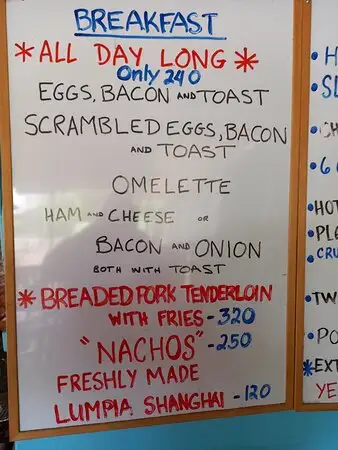 BREAKFAST
* ALL DAY LONG *
Only 240
EGGS, BACON AND TOAST
SCRAMBLED EGGS, BACON
AND TOAST
OMELETTE
HAM AND CHEESE OR
BACON AND ONION
BOTH WITH TOAST
* BREADED PORK TENDERLOIN
WITH FRIES - 320
"NACHOS" - 250
FRESHLY MADE
LUMPIA SHANGHAI - 120